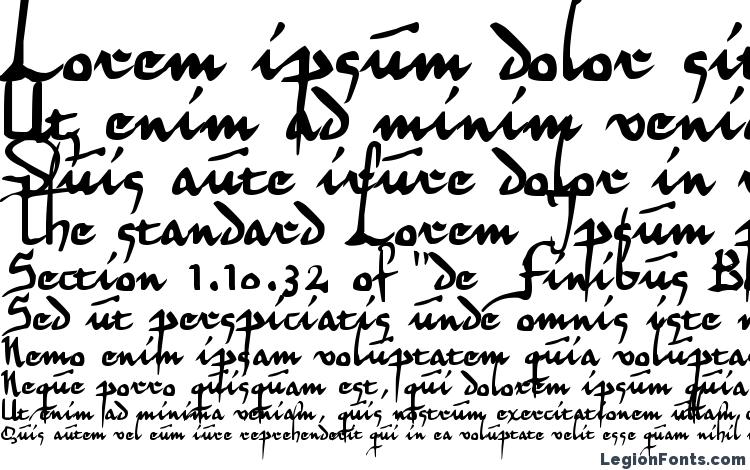 Lorem ipsum dolor sit
Ut enim ad minim veni
Duis aute irure dolor in r
The standard Lorem Ipsum p
Section 1.10.32 of "de Finibus B
Sed ut perspiciatis unde omnis iste n
Nemo enim ipsam voluptatem quia volupta
Neque porro quisquam est, qui dolorem ipsum quia
Ut enim ad minima veniam, quis nostrum exercitationem ullam
Quis autem vel eum iure reprehenderit qui in ea voluptate velit esse quam nihil
LegionFonts.com